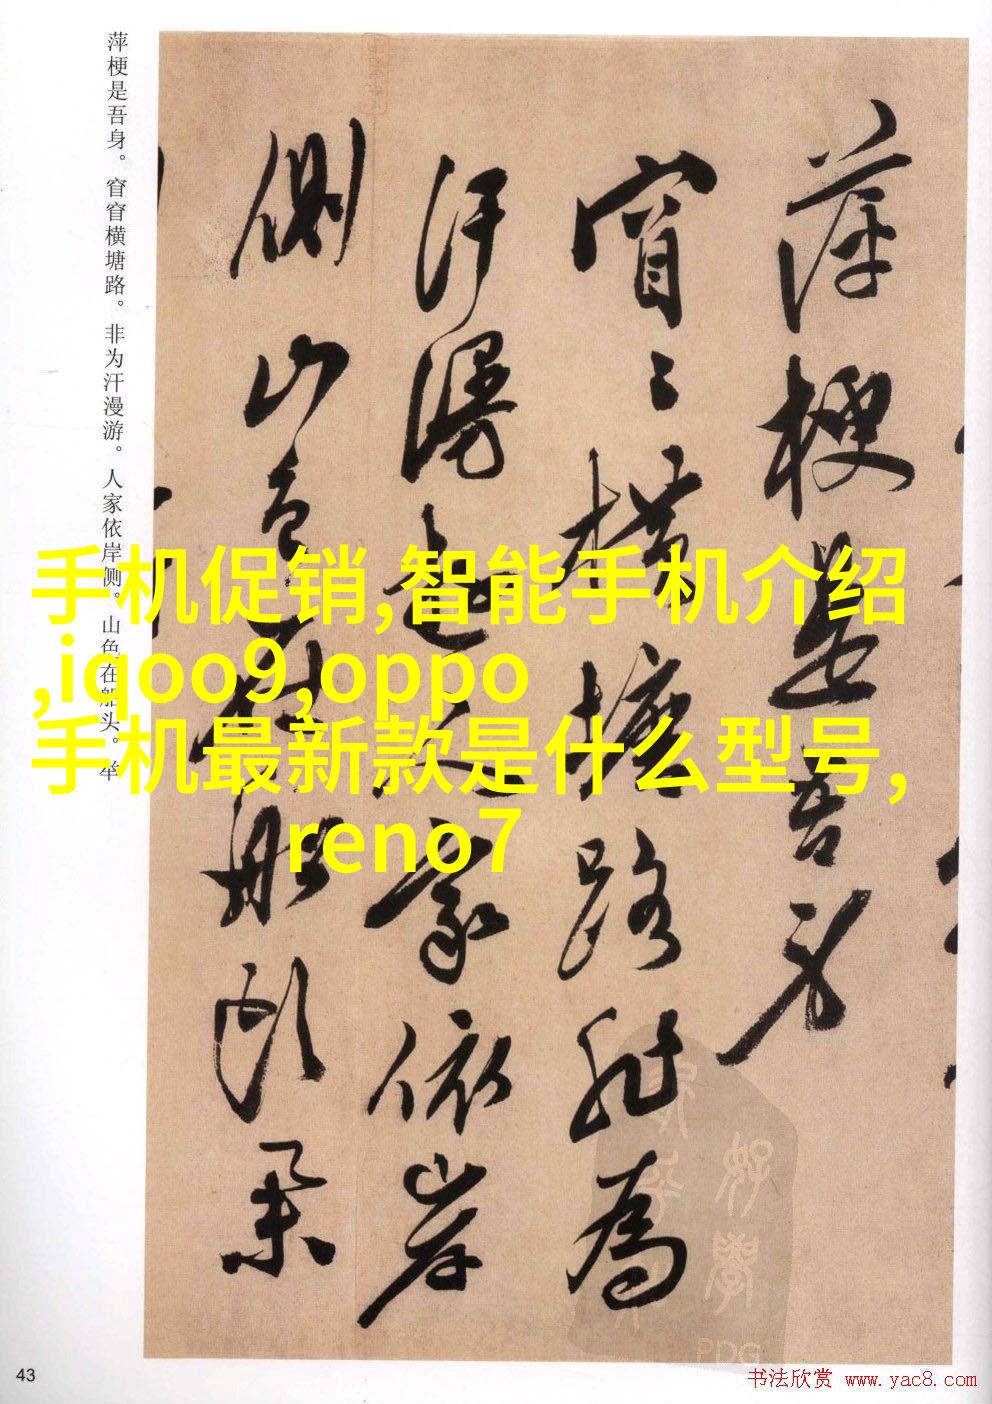 萍梗是吾身。窅窅横塘路。非为汗漫游。人家依岸侧。山色在船头。举
萍梗是吾身
窅窅横塘路非为
汗漫游人家依岸
侧山色在船头朵
手机促销,智能手机介绍
,iqoo9,oppo
手机最新款是什么型号,
reno7
PDG
43
书法欣赏 www.yac8.com